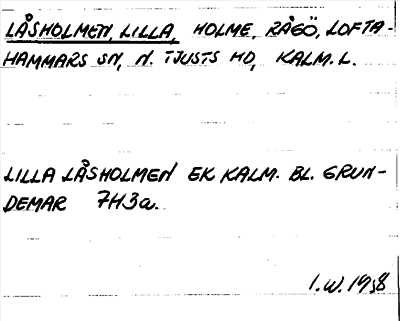 LÅSHOLMEN, LILLA, HOLME, RÅGÖ, LOFTA-
HAMMARS SN, N. TJUSTS HD, KALM. L.
LILLA LÅSHOLMEN EK KALM. BL. GRUN-
DEMAR 7H3a.
I.W. 1958